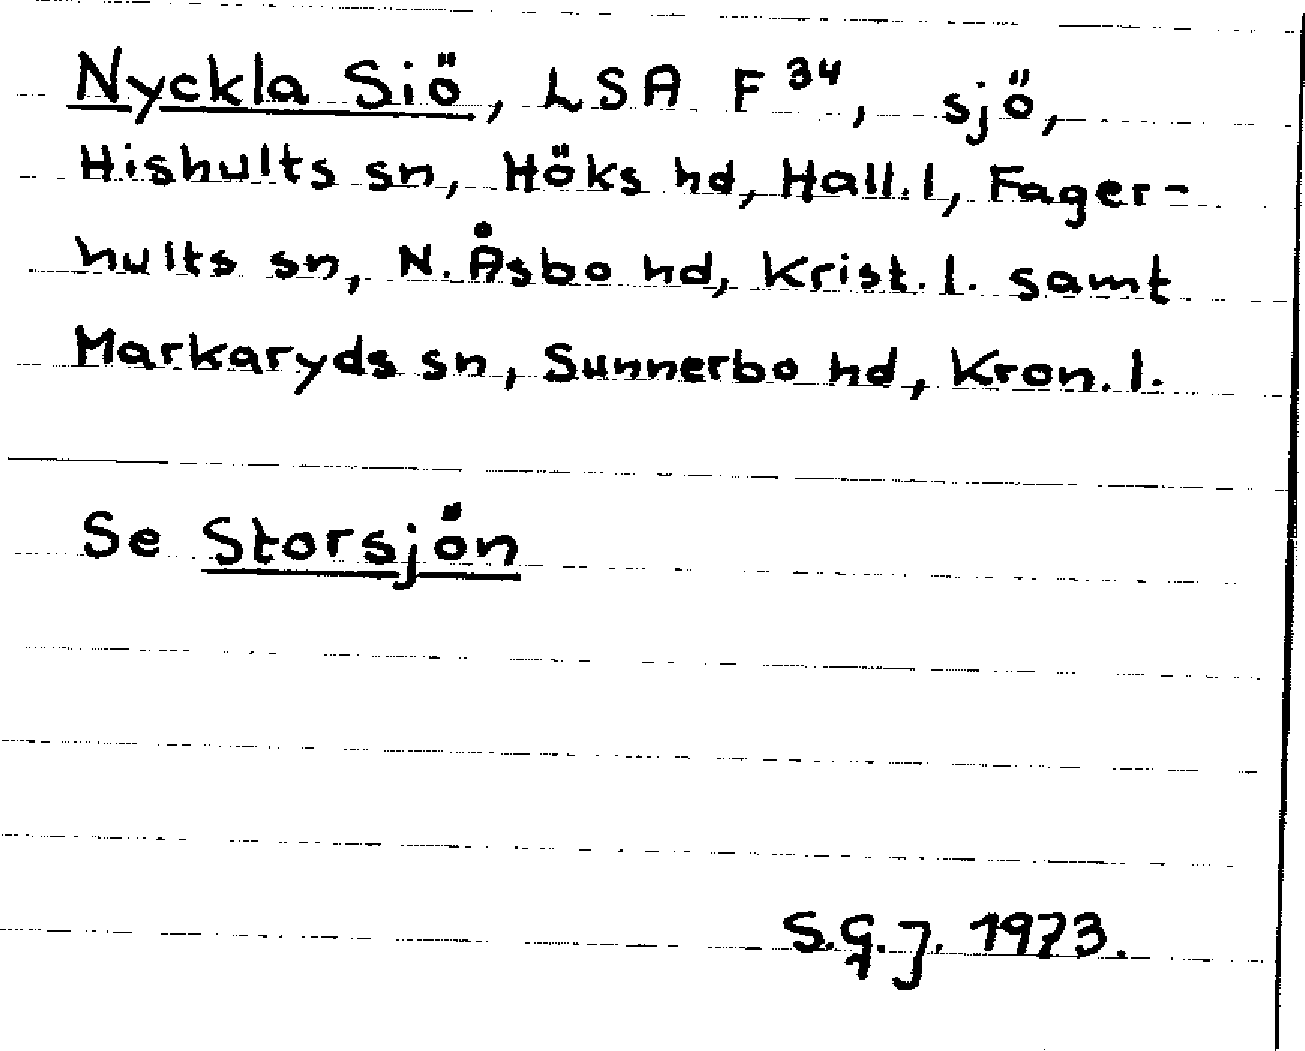 Nyckla Siö, LSA F 34, sjö,
Hishults sn, Höks hd, Hall. l, Fager-
hults sn, N. Åsbo hd, Krist. l. samt
Markaryds sn, Sunnerbo hd, Kron. l.
Se Storsjön
S.G.J. 1973.